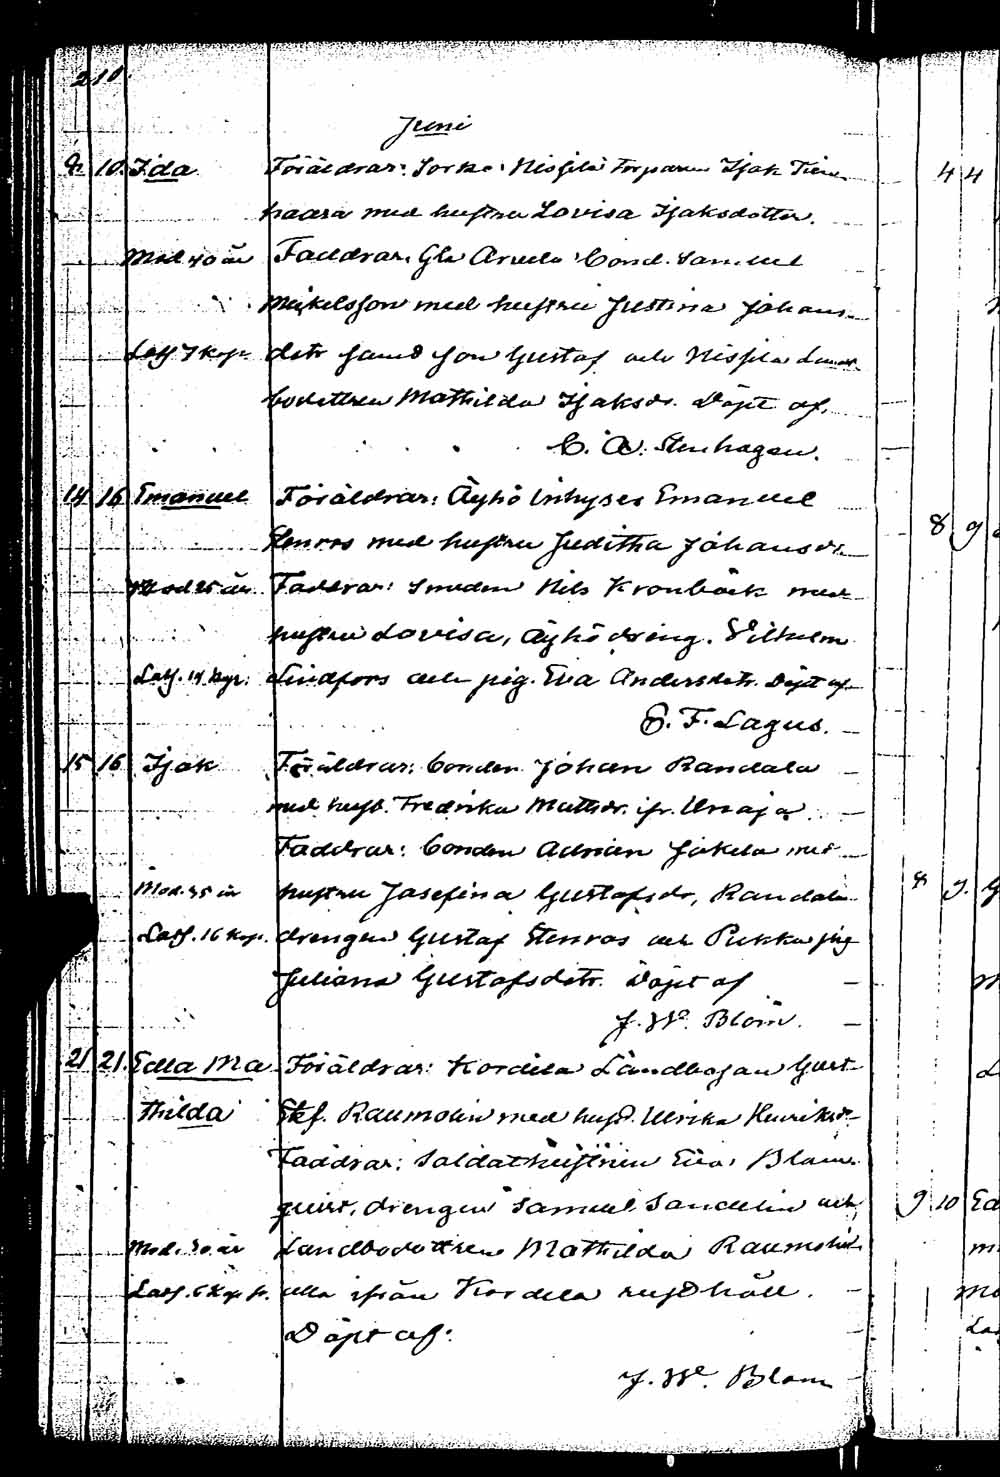 210.
Juni
8. 10. Ida Föräldrar: Sorko: Nissilä Torparen Isak Tien-
haara med hustru Lovisa Isaksdotter.
Mod. 40 år Faddrar: Gla Arvela Bond. Samuel
Mickelsson med hustru Justina Johans-
Latf 7 kop. dotr samt son Gustaf och Nissilä Land-
bodottren Mathilda Isaksdr. Döpt af,
C. A. Stenhagen.
14 16 Emanuel Föräldrar: Äyhö Inhyses Emanuel
Stenros med hustru Juditha Johansdr.
Mod 25 år. Faddrar: Smeden Nils Kronbäck med
hustru Lovisa, Äyhö dreng. Vilhelm
Latf. 14 kop. Lindfors och pig. Eva Andersdotr. Döpt af
E. F. Lagus.
15 16 Isak Föräldrar: Bonden Johan Randala
med hust. Fredrika Mattsdr. ifr.
Faddrar: Bonden Adrian Jakela med
Mod. 35 år hustru Josefina Gustafsdr, Randala
Latf. 16 kop. drengen Gustaf Stenros och Pukka pig
Juliana Gustafsdotr. Döpt af
J. W. Blom.
21 21. Edla Ma- Föräldrar: Kordila Landbogan Gust.
thilda Stef. Raumolin med hust. Ulrika Henriksdr.
Faddrar: Soldathustrun Eva Blom-
qvist, drengen Samuel Sandelin och
Mod. 30 år Landbodottren Mathilda Raumolin
Latf. 6 kop. alla ifrån Kordila rusthåll.
Döpt af:
J. W. Blom
4 4
8 9
8 9. G
M
L
9. 10 Ed
m
Mo
La